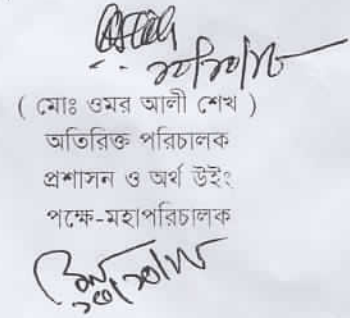 ( মোঃ ওমর আলী শেখ )
অতিরিক্ত পরিচালক
প্রশাসন ও অর্থ উইং
পক্ষে-মহাপরিচালক